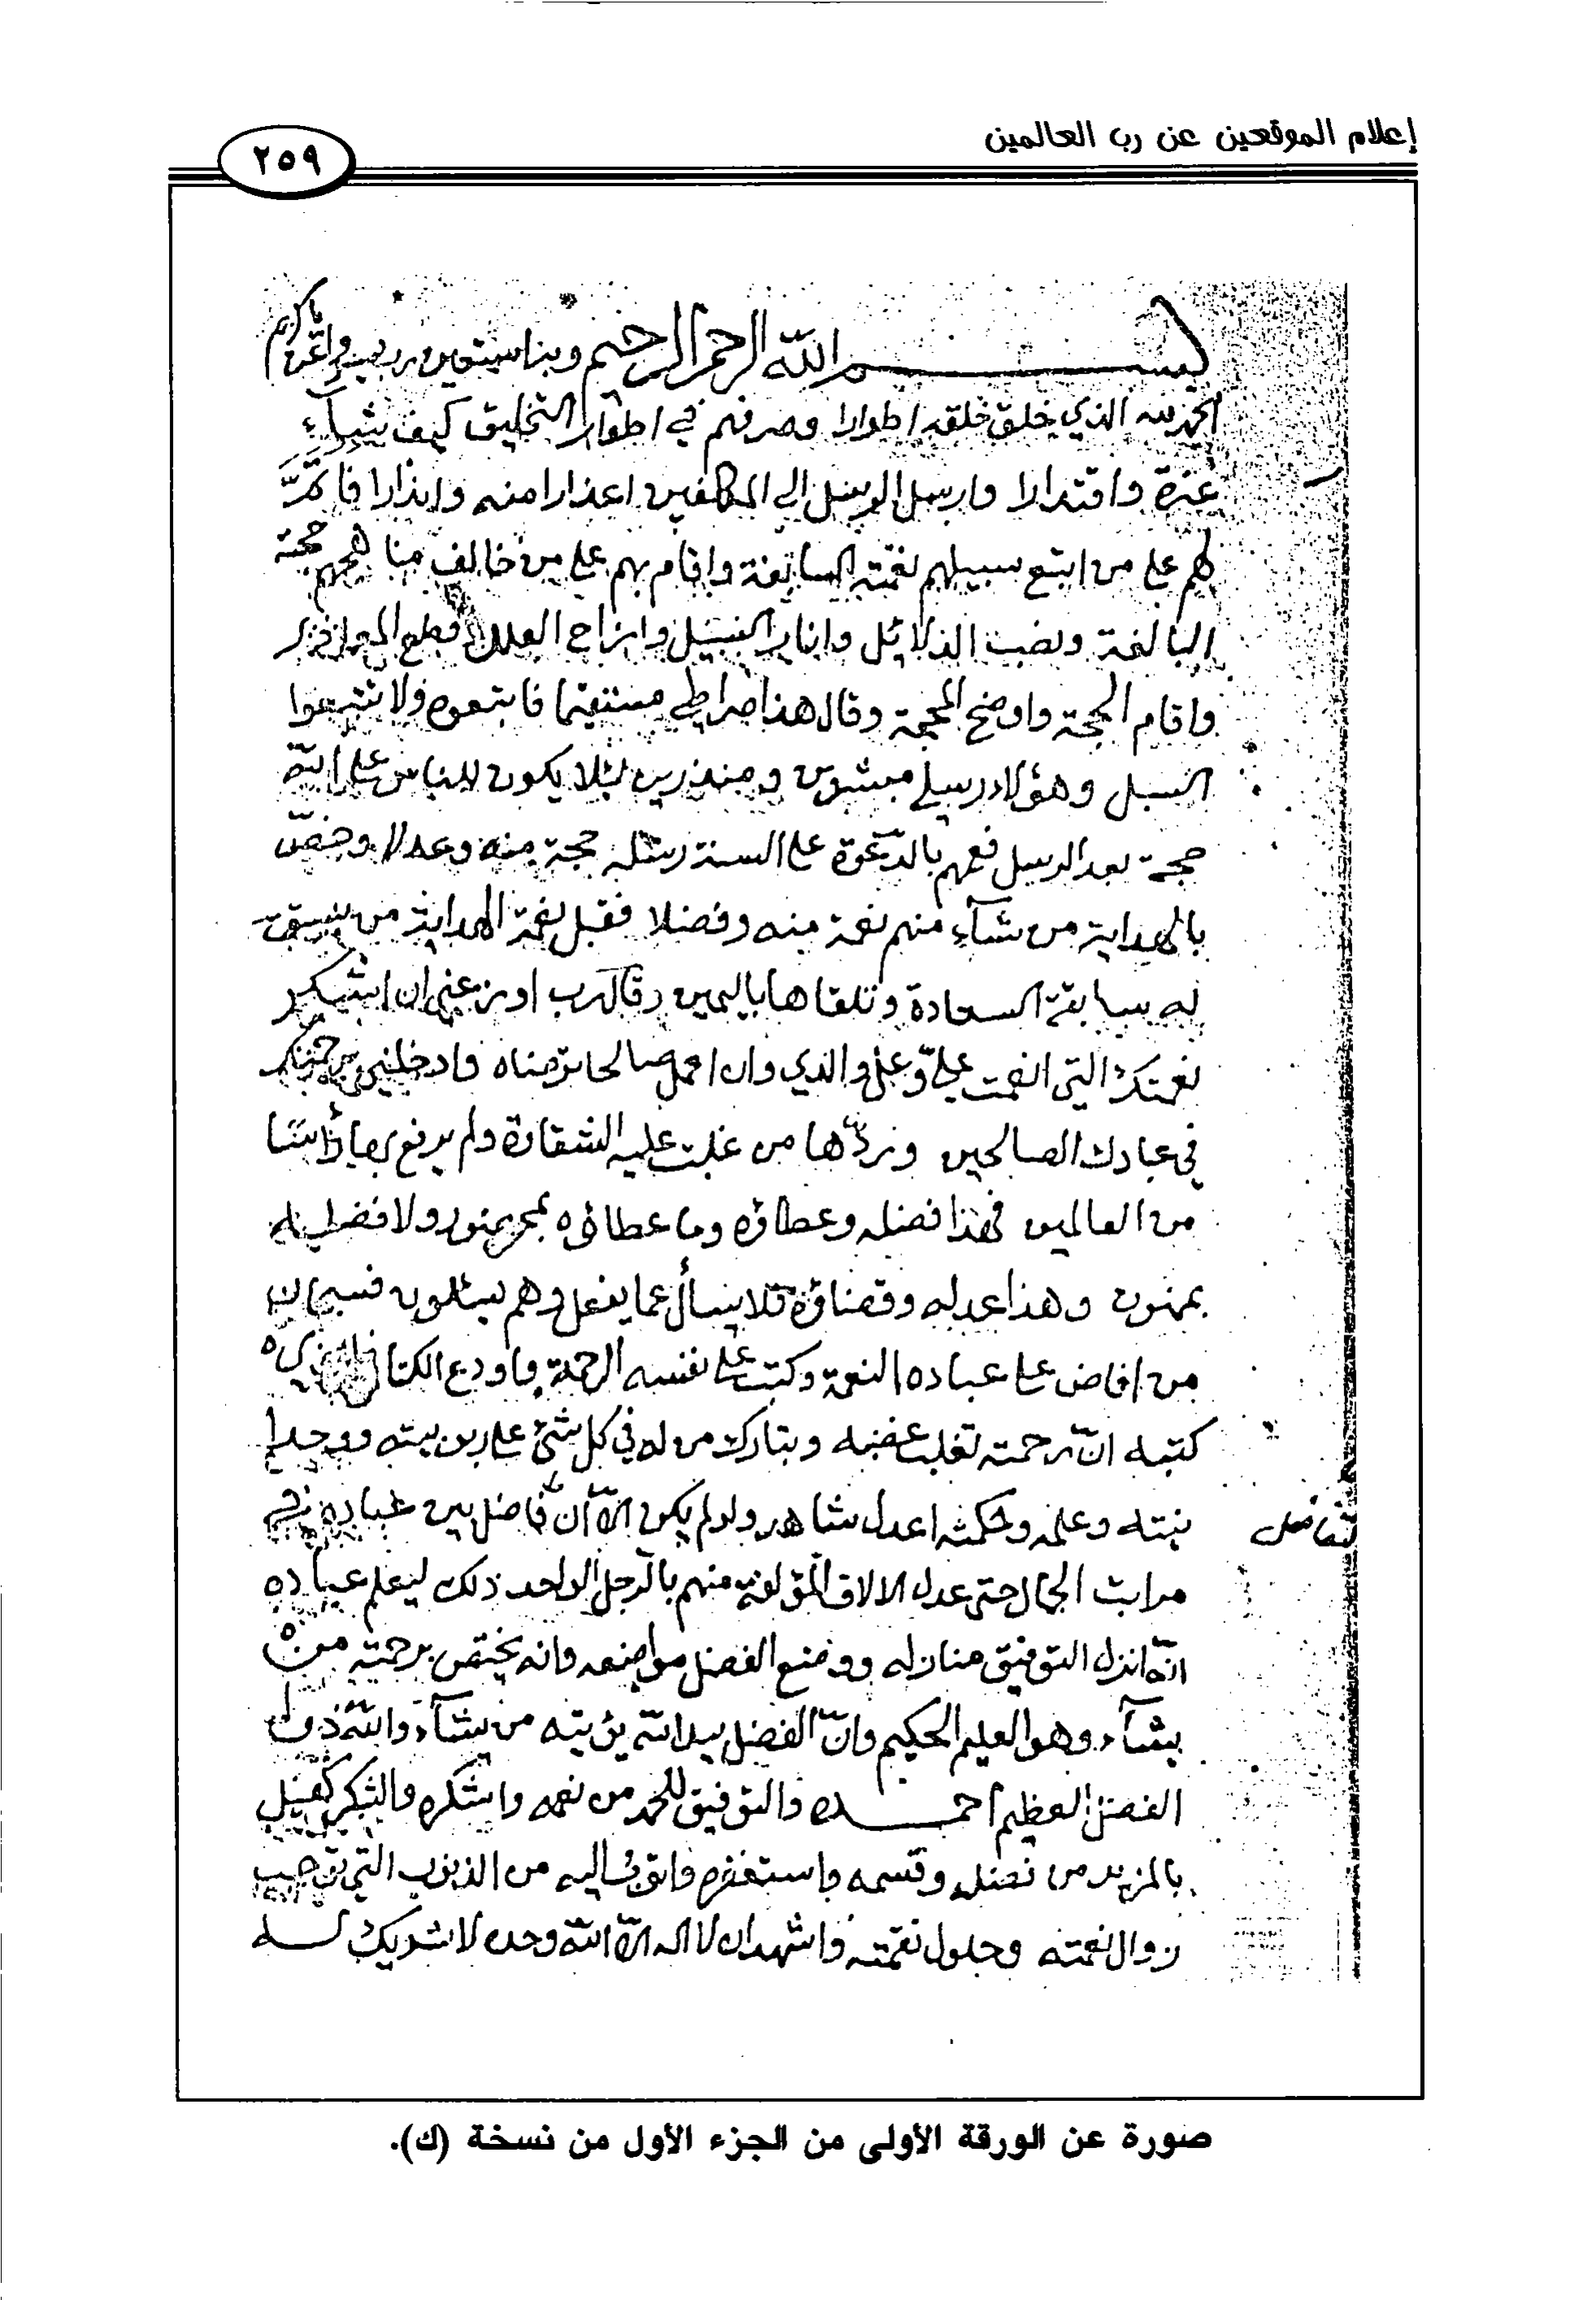 إعلام الموقعين عن رب العالمين
٢٥٩
بسم الله الرحمن الرحيم وبنا نستعين رب يسر واعن يا كريم
الحمد لله الذي خلق خلقه اطوارا وصرفهم في اطوار التخليق كيف شآء
عزة واقتدارا وارسل الرسل الي المكلفين اعذارا منه وانذارا فاتمّ
لهم علي من اتبع سبيلهم نعمته السابغة واقام بهم علي من خالف مناهجهم حجته
البالغة ونصب الدلائل وانار السبيل وازاح العلل وقطع المعاذير
واقام الحجة واوضح المحجة وقال هذا صراطي مستقيما فاتبعوه ولا تتبعوا
السبل وهؤلاء رسلي مبشرين ومنذرين لئلا يكون للناس علي الله
حجة بعد الرسل فعمهم بالدعوة علي السنة رسله حجة منه وعدلا وخصّ
بالهداية من شآء منهم نعمة منه وفضلا فقبل نعمة الهداية من سبقت
له سابقة السعادة وتلقاها باليمين وقال رب اوزعني ان اشكر
نعمتك التي انعمت عليّ وعلي والدي وان اعمل صالحا ترضاه وادخلني برحمتك
في عبادك الصالحين وردّها من غلبت عليه الشقاوة ولم يرفع بها رأسا
من العالمين فهذا فضله وعطاؤه وما عطاؤه بمحظور ولا فضله
بممنون وهذا عدله وقضاؤه فلا يسأل عما يفعل وهم يسئلون فسبحان
من افاض علي عباده النعمة وكتب علي نفسه الرحمة واودع الكتاب الذي
كتبه انّ رحمته تغلب غضبه وتبارك من له في كل شئ علي ربوبيته ووحدا
نيته وعلمه وحكمته اعدل شاهد ولو لم يكن الاّ انّ فاضل بين عباده في
تفاضل
مراتب الكمال حتي عدل الالاف المؤلفة منهم بالرجل الواحد ذلك ليعلم عباده
انّه انزل التوفيق منازله ووضع الفضل مواضعه وانه يختص برحمته من
يشآء وهو العليم الحكيم وانّ الفضل بيد الله يؤتيه من يشآء والله ذو
الفضل العظيم احمده والتوفيق للحمد من نعمه واشكره والشكر كفيل
بالمزيد من فضله وقسمه واستغفره واتوب اليه من الذنوب التي توجب
زوال نعمته وحلول نقمته واشهد ان لا اله الاّ الله وحده لا شريك له
صورة عن الورقة الأولى من الجزء الأول من نسخة (ك).